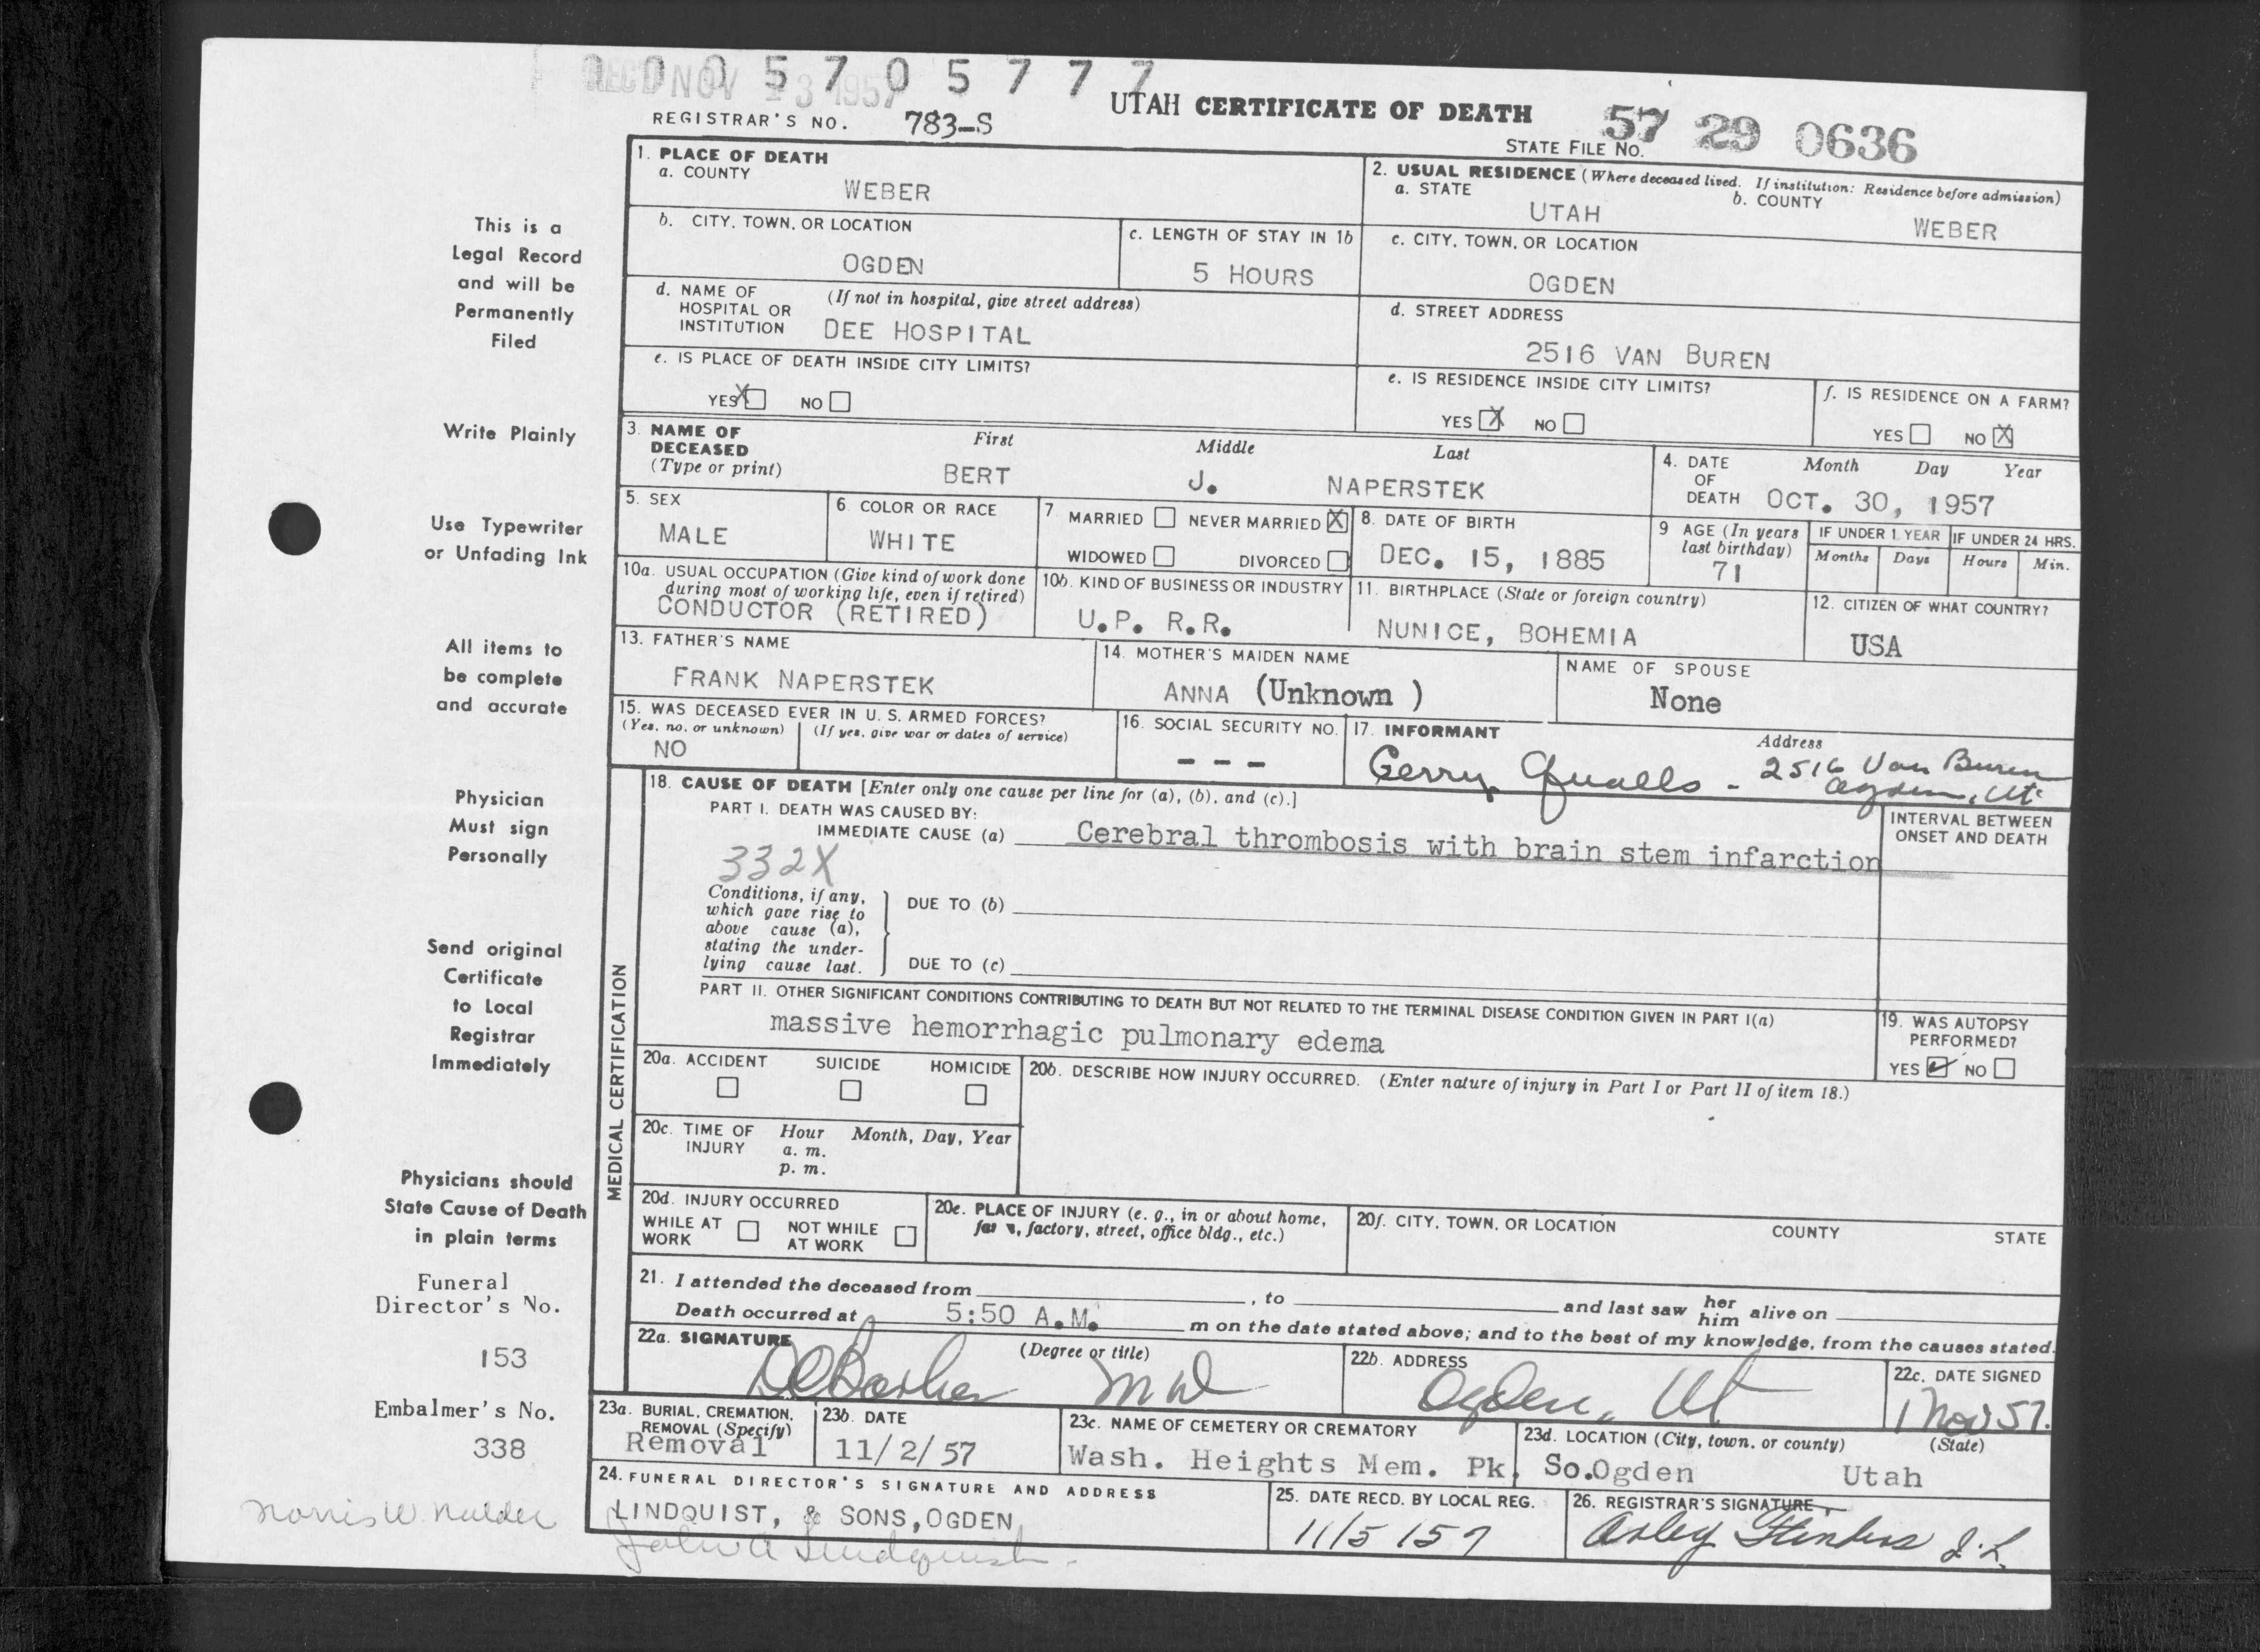 0 0 5 7 0 5 7 7 7
REC'D NOV 13 1957
UTAH CERTIFICATE OF DEATH
REGISTRAR'S NO. 783-S
STATE FILE NO. 57 29 0636
This is a
Legal Record
and will be
Permanently
Filed
Write Plainly
Use Typewriter
or Unfading Ink
All items to
be complete
and accurate
Physician
Must sign
Personally
Send original
Certificate
to Local
Registrar
Immediately
Physicians should
State Cause of Death
in plain terms
Funeral
Director's No.
153
Embalmer's No.
338
1. PLACE OF DEATH
a. COUNTY
WEBER
2. USUAL RESIDENCE (Where deceased lived. If institution: Residence before admission)
a. STATE
UTAH
b. COUNTY
WEBER
b. CITY, TOWN, OR LOCATION
OGDEN
c. LENGTH OF STAY IN 1b
5 HOURS
c. CITY, TOWN, OR LOCATION
OGDEN
d. NAME OF HOSPITAL OR INSTITUTION
(If not in hospital, give street address)
DEE HOSPITAL
d. STREET ADDRESS
2516 VAN BUREN
e. IS PLACE OF DEATH INSIDE CITY LIMITS?
YES X NO
e. IS RESIDENCE INSIDE CITY LIMITS?
YES X NO
f. IS RESIDENCE ON A FARM?
YES NO X
3. NAME OF DECEASED (Type or print)
First Middle Last
BERT J. NAPERSTEK
4. DATE OF DEATH
Month Day Year
OCT. 30, 1957
5. SEX
MALE
6. COLOR OR RACE
WHITE
7. MARRIED NEVER MARRIED X
WIDOWED DIVORCED
8. DATE OF BIRTH
DEC. 15, 1885
9 AGE (In years last birthday)
71
IF UNDER 1 YEAR
Months Days
IF UNDER 24 HRS.
Hours Min.
10a. USUAL OCCUPATION (Give kind of work done during most of working life, even if retired)
CONDUCTOR (RETIRED)
10b. KIND OF BUSINESS OR INDUSTRY
U.P. R.R.
11. BIRTHPLACE (State or foreign country)
NUNICE, BOHEMIA
12. CITIZEN OF WHAT COUNTRY?
USA
13. FATHER'S NAME
FRANK NAPERSTEK
14. MOTHER'S MAIDEN NAME
ANNA (Unknown )
NAME OF SPOUSE
None
15. WAS DECEASED EVER IN U. S. ARMED FORCES?
(Yes, no, or unknown) (If yes, give war or dates of service)
NO
16. SOCIAL SECURITY NO.
- - -
17. INFORMANT
Gerry Qualls -
Address
2516 Van Buren
Ogden, Ut
18. CAUSE OF DEATH [Enter only one cause per line for (a), (b), and (c).]
PART I. DEATH WAS CAUSED BY:
IMMEDIATE CAUSE (a) Cerebral thrombosis with brain stem infarction
INTERVAL BETWEEN ONSET AND DEATH
332X
Conditions, if any, which gave rise to above cause (a), stating the underlying cause last.
DUE TO (b)
DUE TO (c)
PART II. OTHER SIGNIFICANT CONDITIONS CONTRIBUTING TO DEATH BUT NOT RELATED TO THE TERMINAL DISEASE CONDITION GIVEN IN PART I(a)
massive hemorrhagic pulmonary edema
19. WAS AUTOPSY PERFORMED?
YES ✓ NO
MEDICAL CERTIFICATION
20a. ACCIDENT SUICIDE HOMICIDE
20b. DESCRIBE HOW INJURY OCCURRED. (Enter nature of injury in Part I or Part II of item 18.)
20c. TIME OF INJURY
Hour Month, Day, Year
a. m.
p. m.
20d. INJURY OCCURRED
WHILE AT WORK NOT WHILE AT WORK
20e. PLACE OF INJURY (e. g., in or about home, farm, factory, street, office bldg., etc.)
20f. CITY, TOWN, OR LOCATION COUNTY STATE
21. I attended the deceased from , to and last saw her him alive on
Death occurred at 5:50 A.M. m on the date stated above; and to the best of my knowledge, from the causes stated.
22a. SIGNATURE (Degree or title)
MD
22b. ADDRESS
Ogden, Ut
22c. DATE SIGNED
1 Nov 57.
23a. BURIAL, CREMATION, REMOVAL (Specify)
Removal
23b. DATE
11/2/57
23c. NAME OF CEMETERY OR CREMATORY
Wash. Heights Mem. Pk.
23d. LOCATION (City, town, or county) (State)
So.Ogden Utah
24. FUNERAL DIRECTOR'S SIGNATURE AND ADDRESS
LINDQUIST, & SONS, OGDEN
John A Lindquist
25. DATE RECD. BY LOCAL REG.
11/5/57
26. REGISTRAR'S SIGNATURE
Norris W. Nalder